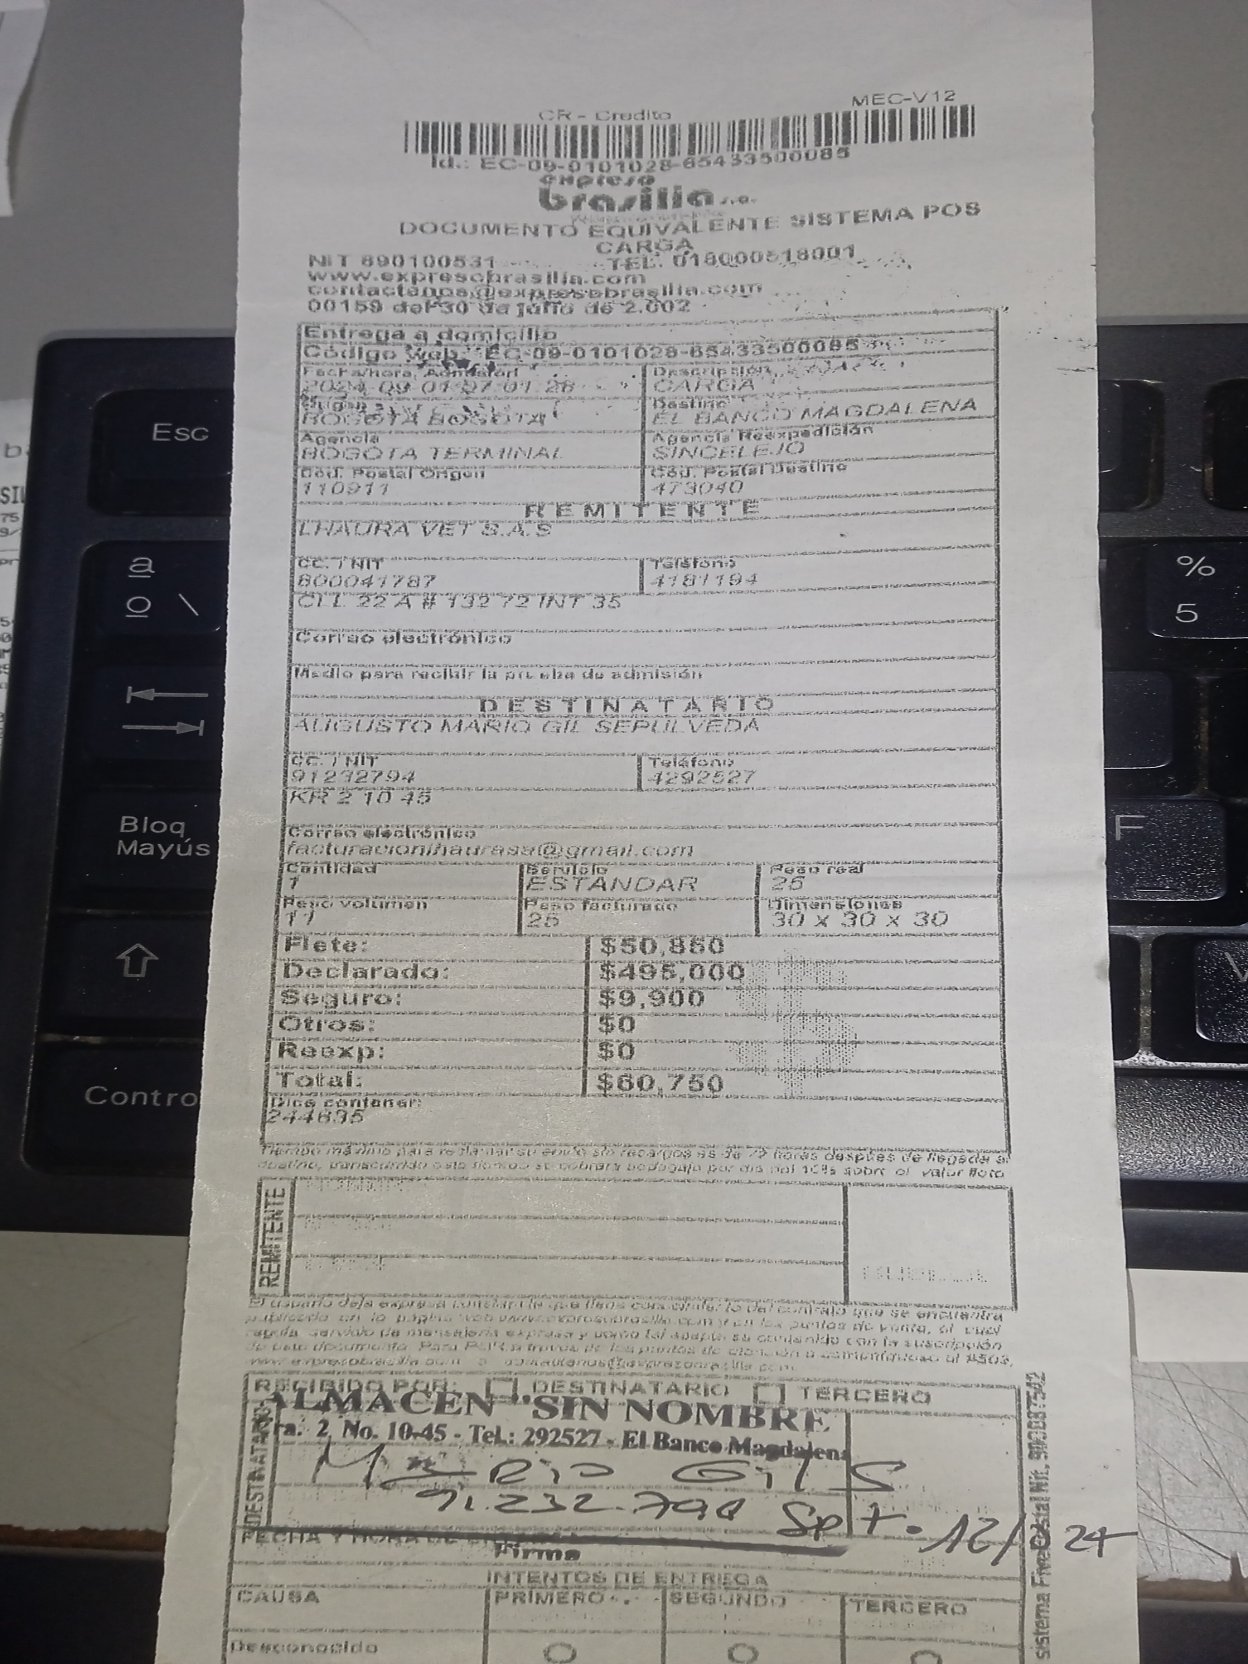 MEC-V12
CR - Credito
Id.: EC-09-0101028-65433500085
expreso
brasilia s.a.
DOCUMENTO EQUIVALENTE SISTEMA POS
CARGA
NIT 890100531 TEL. 018000518001
www.expresobrasilia.com
contactenos@expresobrasilia.com
00159 del 30 de julio de 2.002
Entrega a domicilio
Código Web: EC-09-0101028-65433500085
Fecha/hora Admisión Descripción
2024-09-01 07:01:28 CARGA
Origen Destino
BOGOTA BOGOTA EL BANCO MAGDALENA
Agencia Agencia Reexpedición
BOGOTA TERMINAL SINCELEJO
Cod. Postal Origen Cod. Postal Destino
110911 473040
REMITENTE
LHAURA VET S.A.S
CC. / NIT Teléfono
800041787 4181194
CLL 22 A # 132 72 INT 35
Correo electrónico
Medio para recibir la prueba de admisión
DESTINATARIO
AUGUSTO MARIO GIL SEPULVEDA
CC. / NIT Teléfono
91232794 4292527
KR 2 10 45
Correo electrónico
facturacionlhaurasa@gmail.com
Cantidad Servicio Peso real
1 ESTANDAR 25
Peso volumen Peso facturado Dimensiones
11 25 30 x 30 x 30
Flete: $50,850
Declarado: $495,000
Seguro: $9,900
Otros: $0
Reexp: $0
Total: $60,750
Dice contener:
244635
Tiempo máximo para reclamar su envío sin recargos es de 72 horas después de llegada al
destino, transcurrido este tiempo se cobrará bodegaje por día del 10% sobre el valor flete
REMITENTE
El usuario deja expresa constancia que tiene conocimiento del contrato que se encuentra
publicado en la página web www.expresobrasilia.com y en los puntos de venta, el cual
regula servicio de mensajería expresa y como tal acepta su contenido con la suscripción
de este documento. Para PQR a través de los puntos de atención o comunicarse al #503,
www.expresobrasilia.com o contactenos@expresobrasilia.com
RECIBIDO POR: DESTINATARIO TERCERO
DESTINATARIO
ALMACEN "SIN NOMBRE
ra. 2 No. 10-45 - Tel.: 292527 - El Banco Magdalena
Mario Gil S
91.232.794 Sept. 12/ 24
FECHA Y HORA DE
Firma
INTENTOS DE ENTREGA
CAUSA PRIMERO SEGUNDO TERCERO
Desconocido
Esc
a
o \
Bloq
Mayús
Contro
%
5
F